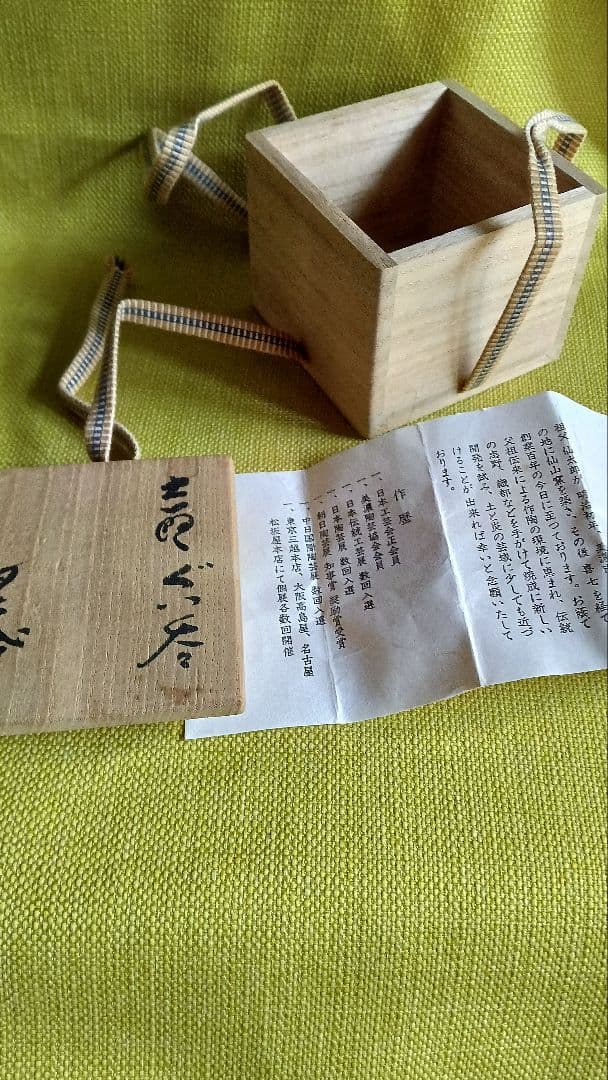 祖父、仙太郎が
の地に仙山窯を築き、その後、喜七を経て
創業百年の今日に至っております。お蔭で
父祖伝来による作陶の環境に恵まれ、伝統
の志野、織部などを手がけて焼成に新しい
開発を試み、土と炎の芸術に少しでも近づ
けることが出来れば幸いと念願いたして
おります。
作歴
一、日本工芸会正会員
一、美濃陶芸協会会員
一、日本伝統工芸展 数回入選
一、日本陶芸展 数回入選
一、朝日陶芸展 知事賞 奨励賞受賞
一、中日国際陶芸展 数回入選
一、東京三越本店、大阪高島屋、名古屋
松坂屋本店にて個展各数回開催
志野 ぐい呑